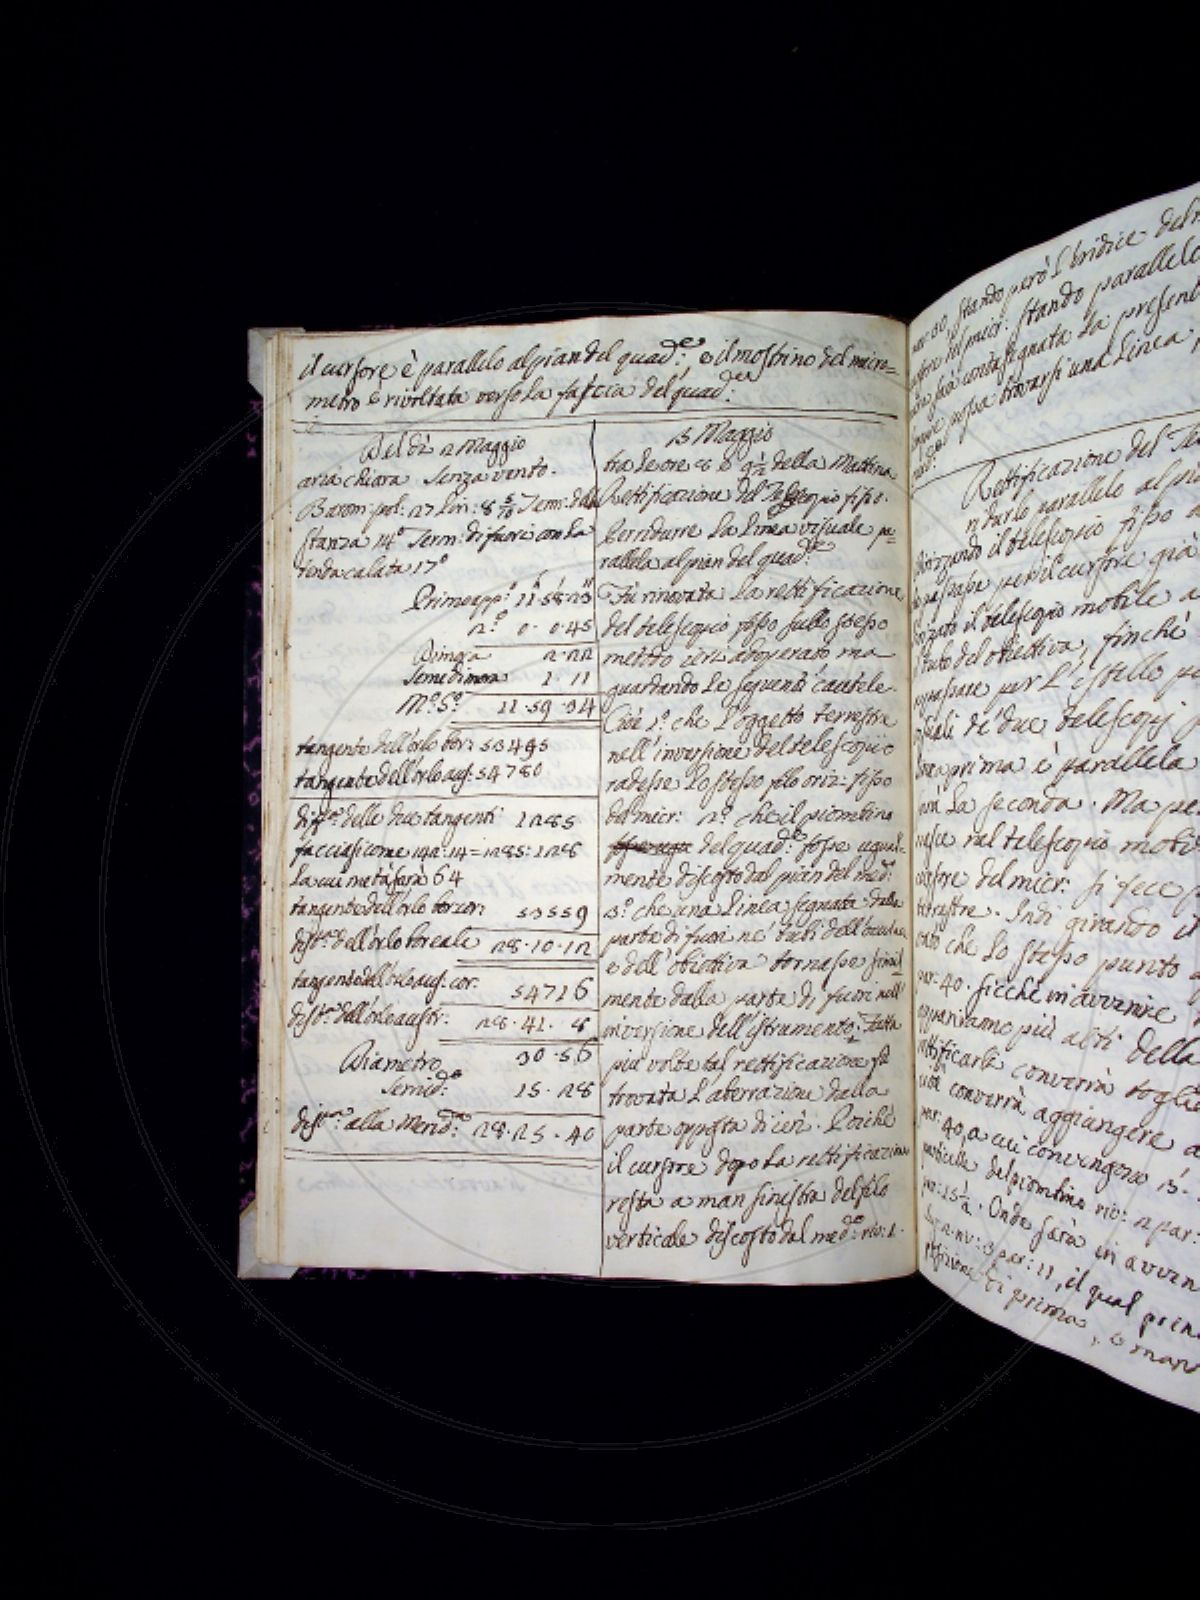 il cursore è parallelo al pian del quad.e: e il mostrino del micro=
metro è rivoltata verso la fascia del quad.e:
Del dì 2 Maggio
aria chiara senza vento.
Barom: pol: 27 lin: 8 5/10 Term: della
stanza 14° Term: di fuori con la
tenda calata 17°
Primo app.° 11 58 23
2.° 0. 0. 45
Dimora 2. 22
Semidimora 1. 11
M.° S.° 11. 59. 34
tangente dell'orlo bor: 53495
tangente dell'orlo aus: 54780
diff.za delle due tangenti 1285
facciasi come 142: 14 = 1285: 128
la cui metà sarà 64
tangente dell'orlo bor cor: 53559
dist.za dell'orlo boreale 28. 10. 12
tangente dell'orlo aus. cor. 54716
dist.za dell'orlo austr: 28. 41. 8
Diametro 30. 56
Semid.o 15. 28
dist.za alla Merid.na: 28. 25. 40
13 Maggio
tra le ore 8 e 9 1/2 della Mattina
Rettificazione del Telescopio fisso.
Per ridurre la linea visuale pa=
rallela al pian del quad.e
Fù rinovata la rettificazione
del telescopio fisso sullo stesso
metodo ieri adoperato ma
guardando le seguenti cautele.
Cioè 1.° che l'oggetto terrestre
nell'inversione del telescopio
radesse lo stesso filo oriz: fisso
del micr: 2.° che il piombino
del quad.e fosse ugual=
mente discosto dal pian del med:
3.° che una linea segnata dalla
parte di fuori ne' tubi dell'oculare
e dell'obiettiva tornasse simil
mente dalla parte di fuori nell'
inversione dell'istrumento: Fatta
più volte tal rettificazione fu
trovata l'aberrazione dalla
parte opposta di ieri. Poichè
il cursore dopo la rettificazione
resta a man sinistra del filo
verticale discosto dal med.o: riv: 1.
30, stando però l'Indice del
micr: stando parallelo
già contasegnata la present
possa trovarsi una linea
Rettificazione del Te
ridurlo parallelo al pia
Dirizzando il telescopio fisso
passasse per il cursore già
il telescopio mobile a
tubo del obiettiva, finchè
passare per l'istesso pu
de' due telescopj
prima è parallela
la seconda. Ma pe
nel telescopio mobi
del micr: si fece p
terrestre. Indi girando il
che lo stesso punto
par: 40. sicchè in avvenire
appariranno più alti della
rettificarle converrà toglie
converrà aggiangere a
par: 40, a cui convengono 13
particelle del piombino riv: 2 par:
par: 15 1/2. Onde sarà in avven
riv: 3 par: 11, il qual prin
di prima, e man